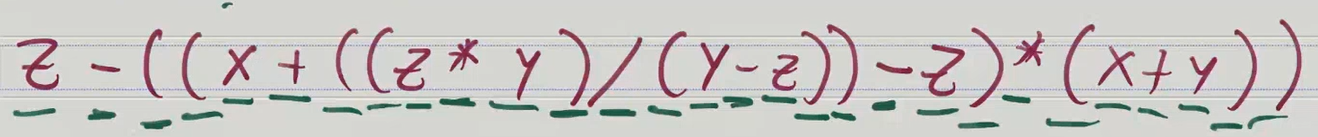 z - ((x + ((z * y) / (y - z)) - z) * (x + y))